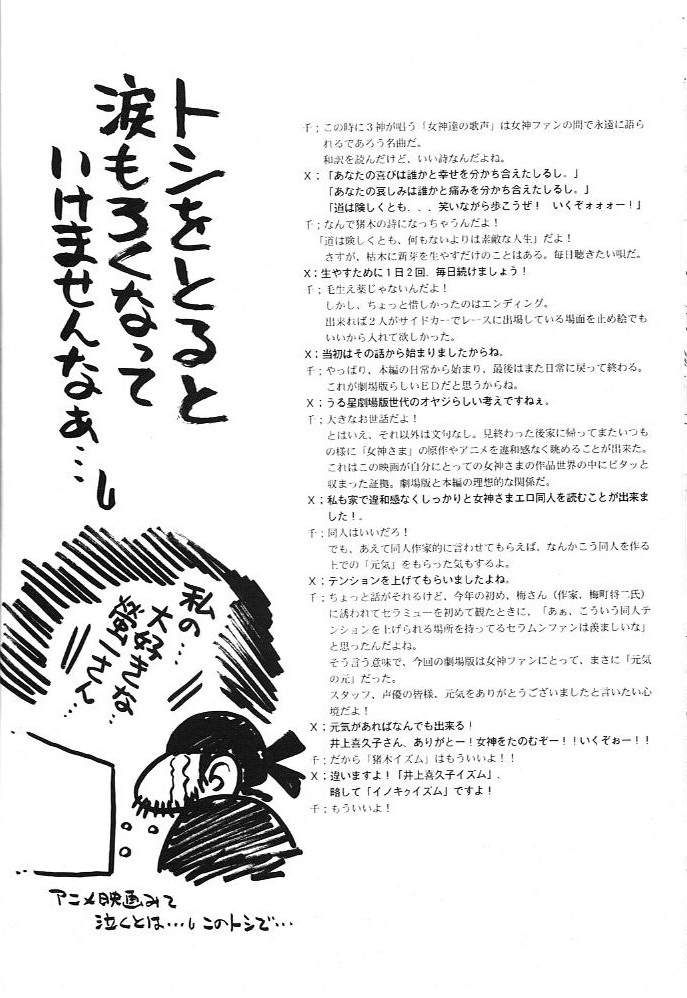 トシをとると
涙もろくなって
いけませんなぁ…し
千；この時に３神が唱う「女神達の歌声」は女神ファンの間で永遠に語ら
れるであろう名曲だ。
和訳を読んだけど、いい詩なんだよね。
Ｘ；「あなたの喜びは誰かと幸せを分かち合えたしるし。」
「あなたの哀しみは誰かと痛みを分かち合えたしるし。」
「道は険しくとも．．．笑いながら歩こうぜ！　いくぞォォォー！」
千；なんで猪木の詩になっちゃうんだよ！
「道は険しくとも、何もないよりは素敵な人生」だよ！
さすが、枯木に新芽を生やすだけのことはある。毎日聴きたい唄だ。
Ｘ；生やすために１日２回．毎日続けましょう！
千；毛生え薬じゃないんだよ！
しかし、ちょっと惜しかったのはエンディング。
出来れば２人がサイドカーでレースに出場している場面を止め絵でも
いいから入れて欲しかった。
Ｘ；当初はその話から始まりましたからね。
千；やっぱり、本編の日常から始まり、最後はまた日常に戻って終わる。
これが劇場版らしいＥＤだと思うからね。
Ｘ；うる星劇場版世代のオヤジらしい考えですねぇ。
千；大きなお世話だよ！
とはいえ、それ以外は文句なし。見終わった後家に帰ってまたいつも
の様に「女神さま」の原作やアニメを違和感なく眺めることが出来た。
これはこの映画が自分にとっての女神さまの作品世界の中にピタッと
収まった証拠。劇場版と本編の理想的な関係だ。
Ｘ；私も家で違和感なくしっかりと女神さまエロ同人を読むことが出来ま
した！。
千；同人はいいだろ！
でも、あえて同人作家的に言わせてもらえば、なんかこう同人を作る
上での「元気」をもらった気もするよ。
Ｘ；テンションを上げてもらいましたよね。
千；ちょっと話がそれるけど、今年の初め、梅さん（作家、梅町将二氏）
に誘われてセラミューを初めて観たときに、「あぁ、こういう同人テ
ンションを上げられる場所を持ってるセラムンファンは羨ましいな」
と思ったんだよね。
そう言う意味で、今回の劇場版は女神ファンにとって、まさに「元気
の元」だった。
スタッフ、声優の皆様、元気をありがとうございましたと言いたい心
境だよ！
Ｘ；元気があればなんでも出来る！
井上喜久子さん、ありがとー！女神をたのむぞー！！いくぞぉー！！
千；だから「猪木イズム」はもういいよ！！
Ｘ；違いますよ！「井上喜久子イズム」．
略して「イノキゥイズム」ですよ！
千；もういいよ！
私の…
大好きな
螢一さん…
アニメ映画みて
泣くとは…し このトシで…